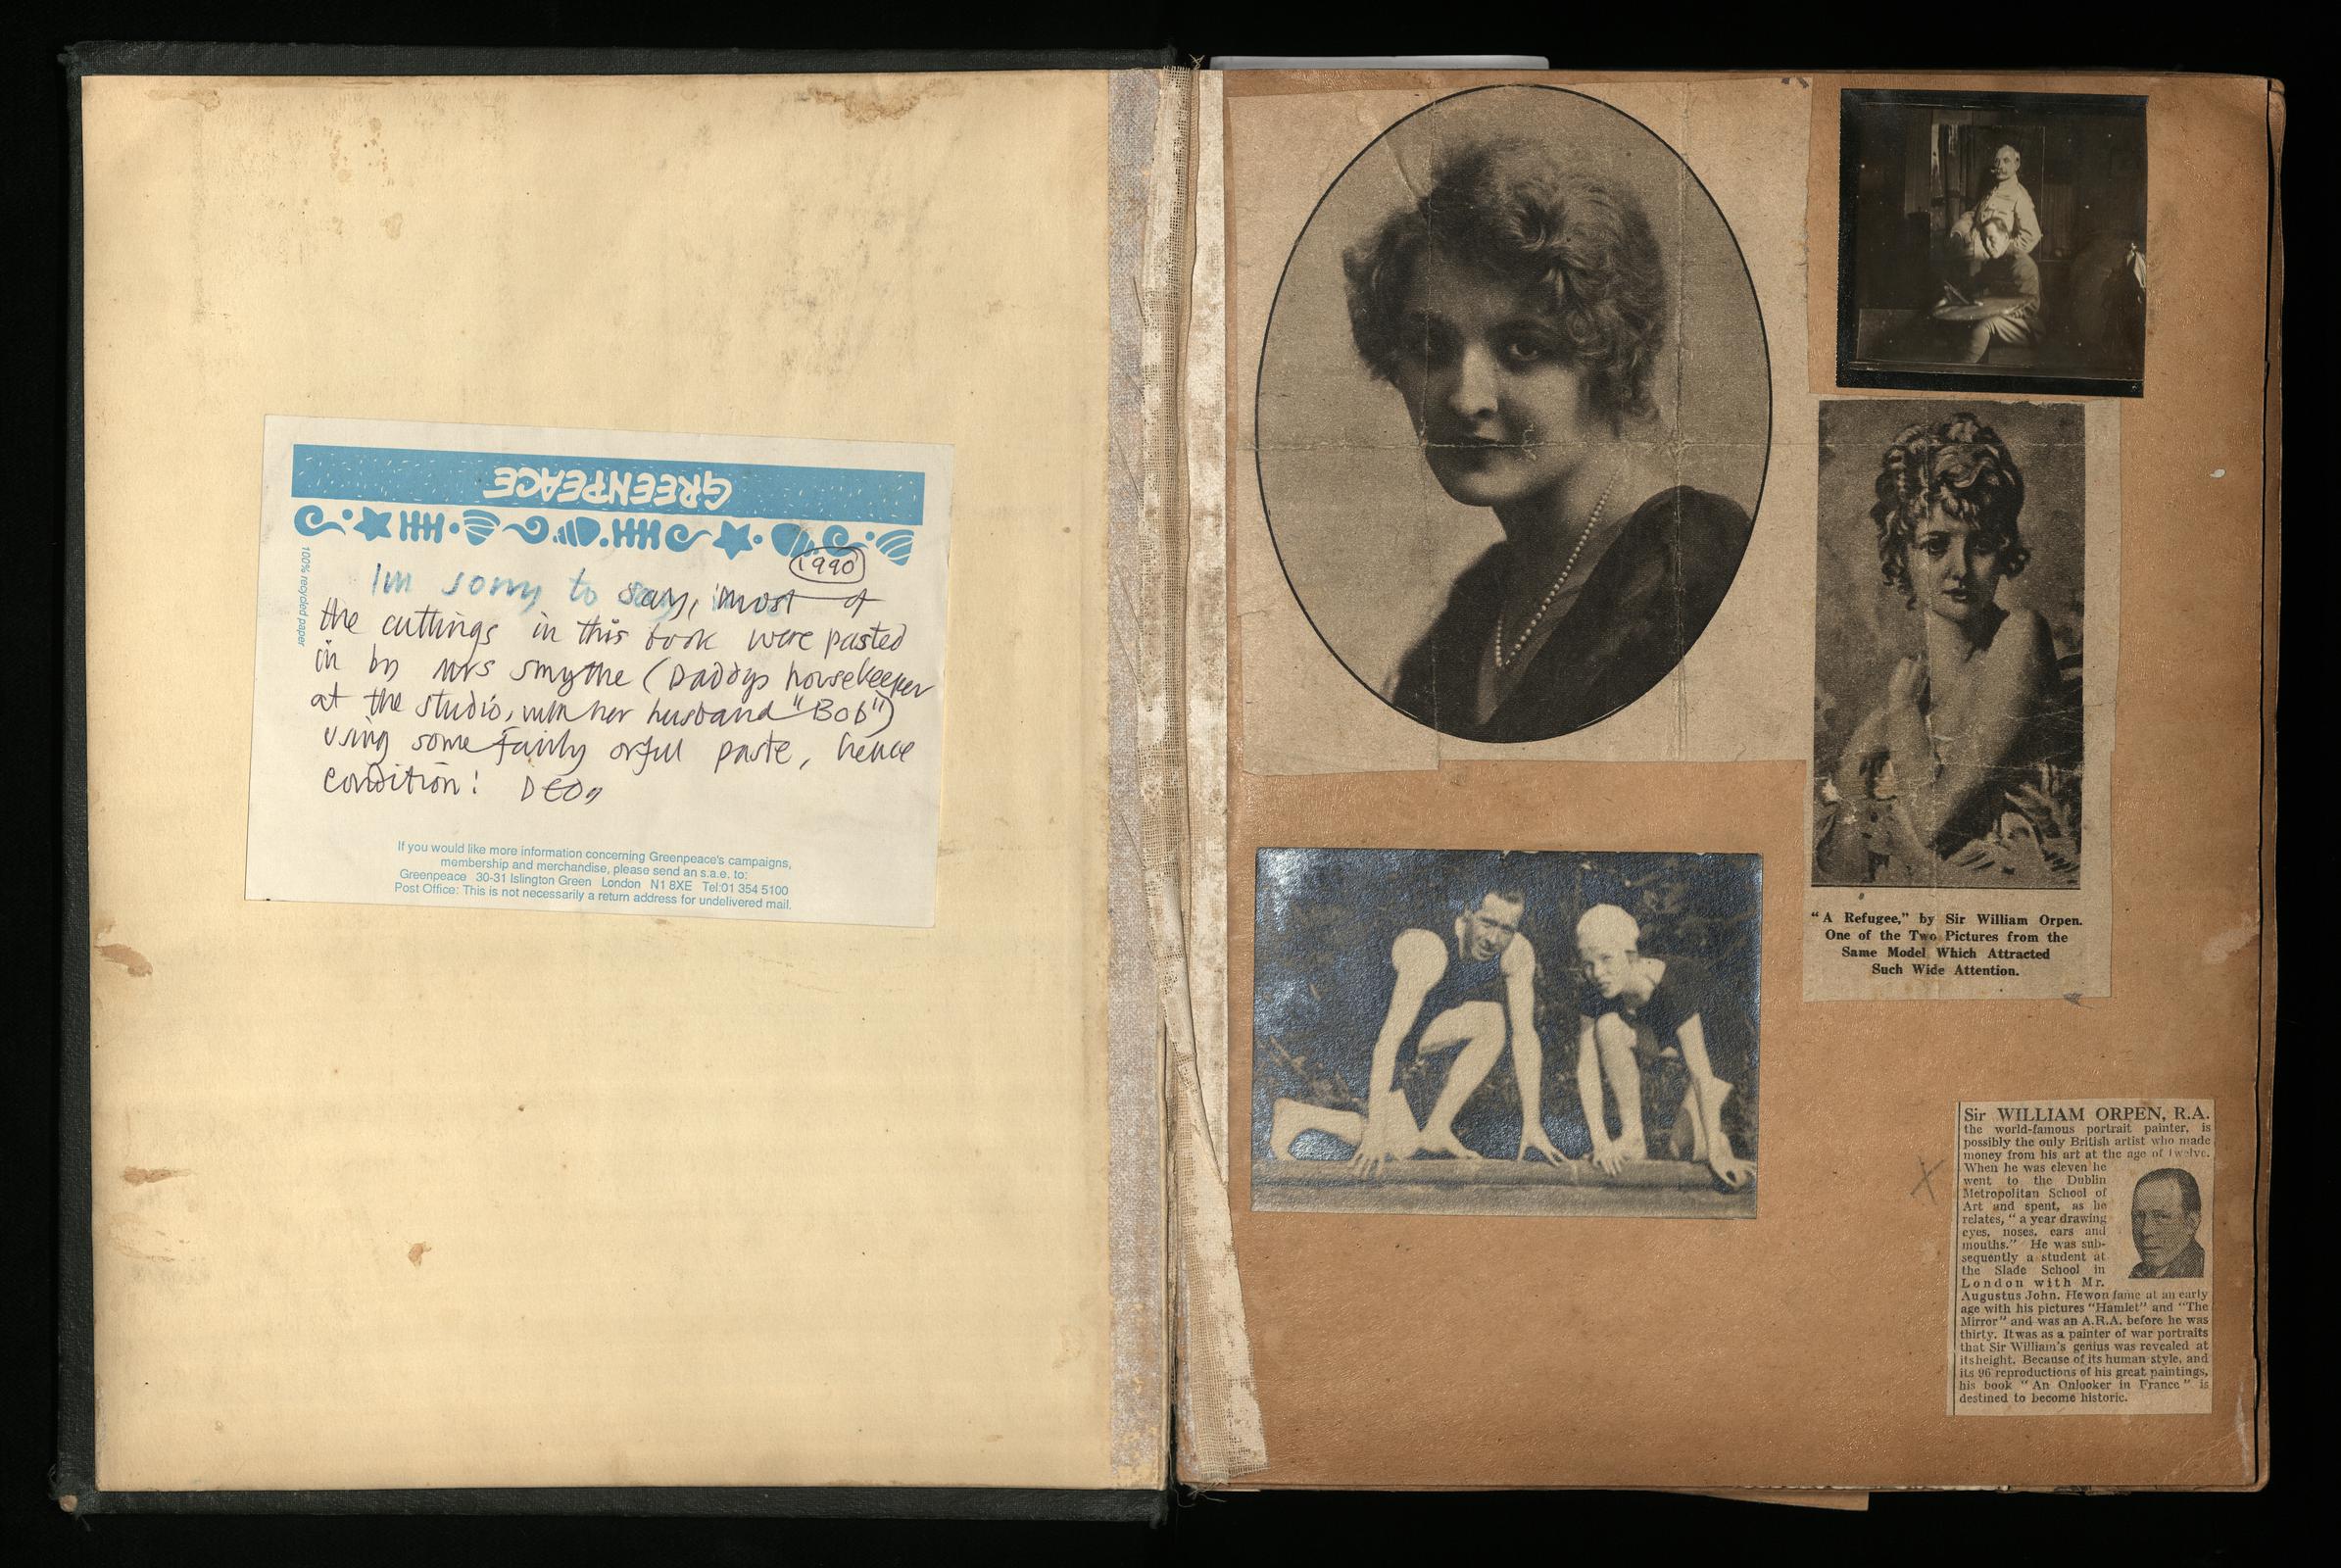 GREENPEACE
100% recycled paper
1990
Im sorry to say, most of
the cuttings in this book were pasted
in by Mrs Smythe (Daddys housekeeper
at the studio, with her husband "Bob")
using some fairly orful paste, hence
condition! DEO
If you would like more information concerning Greenpeace's campaigns,
membership and merchandise, please send an s.a.e. to:
Greenpeace 30-31 Islington Green London N1 8XE Tel:01 354 5100
Post Office: This is not necessarily a return address for undelivered mail.
"A Refugee," by Sir William Orpen.
One of the Two Pictures from the
Same Model Which Attracted
Such Wide Attention.
X
Sir WILLIAM ORPEN, R.A.
the world-famous portrait painter, is
possibly the only British artist who made
money from his art at the age of twelve.
When he was eleven he
went to the Dublin
Metropolitan School of
Art and spent, as he
relates, "a year drawing
eyes, noses, ears and
mouths." He was sub-
sequently a student at
the Slade School in
London with Mr.
Augustus John. He won fame at an early
age with his pictures "Hamlet" and "The
Mirror" and was an A.R.A. before he was
thirty. It was as a painter of war portraits
that Sir William's genius was revealed at
its height. Because of its human style, and
its 96 reproductions of his great paintings,
his book "An Onlooker in France" is
destined to become historic.